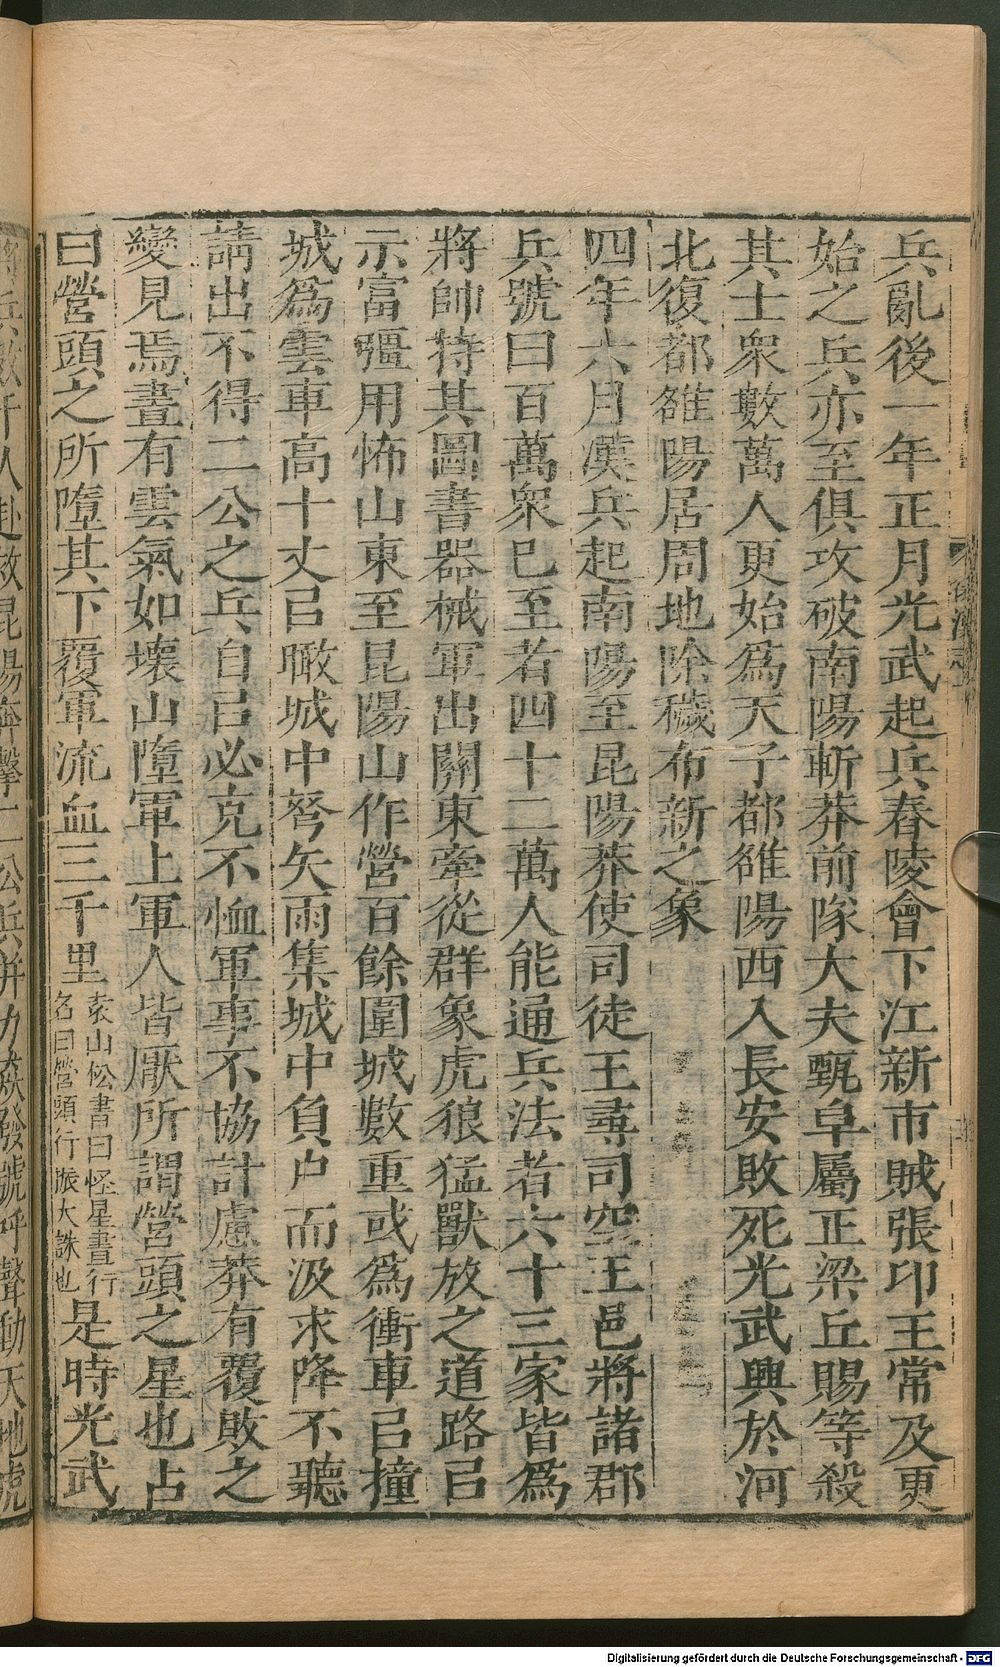 兵亂後一年正月光武起兵舂陵會下江新市賊張卬王常及更
始之兵亦至俱攻破南陽斬莽前隊大夫甄阜屬正梁丘賜等殺
其士衆數萬人更始爲天子都雒陽西入長安敗死光武興於河
北復都雒陽居周地除穢布新之象
四年六月漢兵起南陽至昆陽莽使司徒王尋司空王邑將諸郡
兵號曰百萬衆已至者四十二萬人能通兵法者六十三家皆爲
將帥持其圖書器械軍出關東牽從群象虎狼猛獸放之道路㠯
示富彊用怖山東至昆陽山作營百餘圍城數重或爲衝車㠯撞
城爲雲車高十丈㠯瞰城中弩矢雨集城中負户而汲求降不聽
請出不得二公之兵自㠯必克不恤軍事不協計慮莽有覆敗之
變見焉晝有雲氣如壞山墮軍上軍人皆厭所謂營頭之星也占
曰營頭之所墮其下覆軍流血三千里
袁山松書曰怪星晝行
名曰營頭行旅大誅也
是時光武
將兵數千人赴救昆陽奔擊二公兵并力猋發號呼聲動天地虎
Digitalisierung gefördert durch die Deutsche Forschungsgemeinschaft - DFG